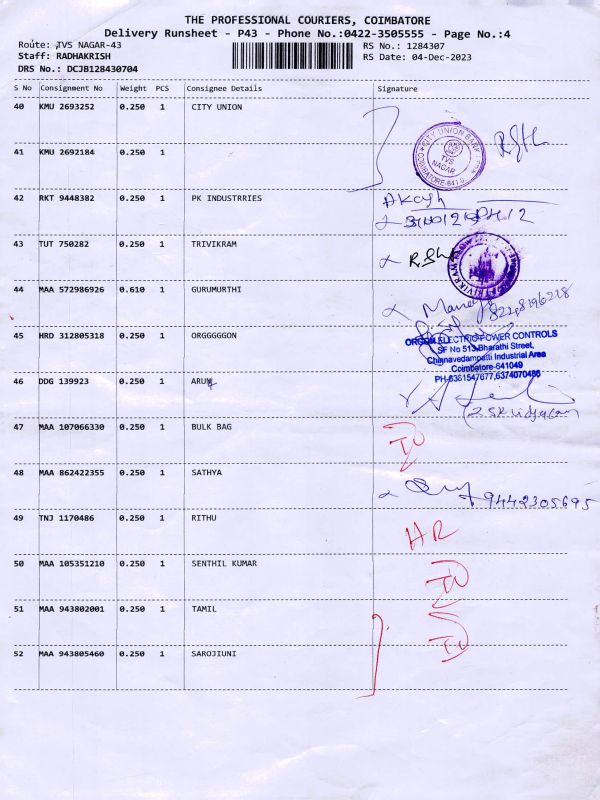 THE PROFESSIONAL COURIERS, COIMBATORE
Delivery Runsheet - P43 - Phone No.:0422-3505555 - Page No.:4
Route: TVS NAGAR-43
RS No.: 1284307
Staff: RADHAKRISH
RS Date: 04-Dec-2023
DRS No.: DCJB128430704
S No Consignment No Weight PCS Consignee Details Signature
40 KMU 2693252 0.250 1 CITY UNION
CITY UNION BANK
TVS
NAGAR
41 KMU 2692184 0.250 1
42 RKT 9448382 0.250 1 PK INDUSTRRIES
43 TUT 750282 0.250 1 TRIVIKRAM
44 MAA 572986926 0.610 1 GURUMURTHI
45 HRD 312805318 0.250 1 ORGGGGGON
ORGON ELECTRIC POWER CONTROLS
SF No 513, Bharathi Street,
Chinnavedampatti Industrial Area
Coimbatore-641049
PH-6361547677,6374070486
46 DDG 139923 0.250 1 ARUN
47 MAA 107066330 0.250 1 BULK BAG
48 MAA 862422355 0.250 1 SATHYA
9442305695
49 TNJ 1170486 0.250 1 RITHU
HR
50 MAA 105351210 0.250 1 SENTHIL KUMAR
51 MAA 943802001 0.250 1 TAMIL
52 MAA 943805460 0.250 1 SAROJIUNI